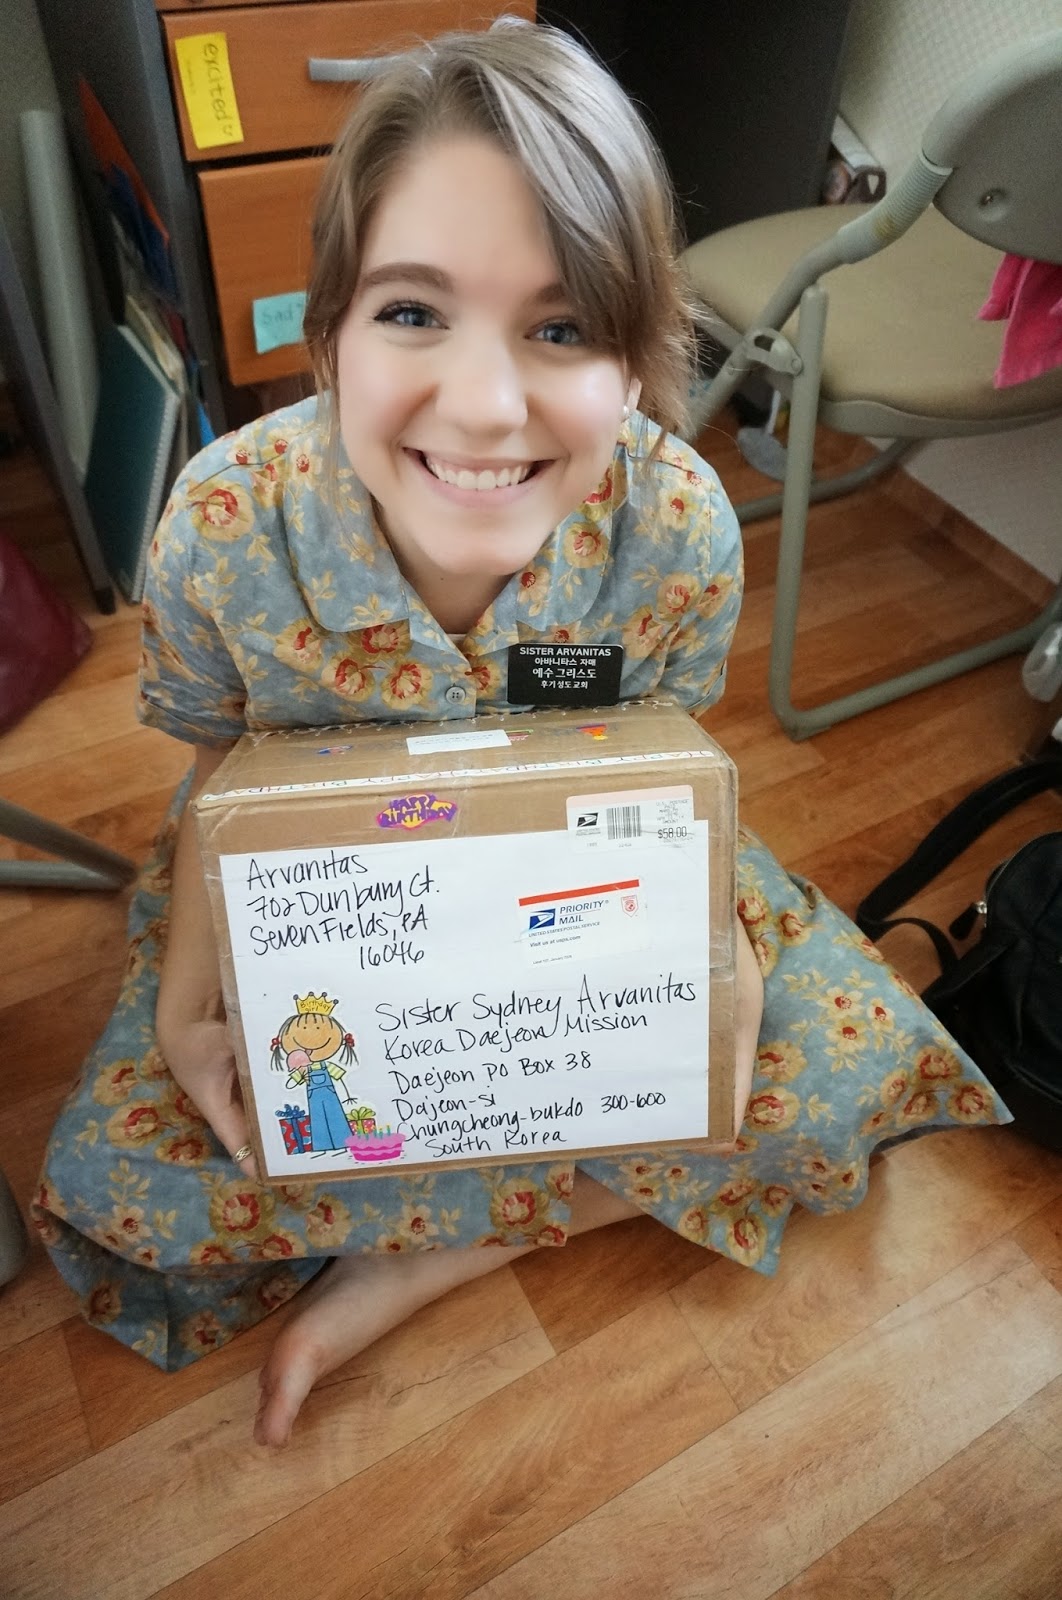 excited
Sad
SISTER ARVANITAS
아바니타스 자매
예수 그리스도
후기성도 교회
HAPPY BIRTHDAY HAPPY BIRTHDAY
HAPPY
BIRTHDAY
$58.00
Arvanitas
702 Dunbury Ct.
Seven Fields, PA
16046
PRIORITY®
MAIL
UNITED STATES POSTAL SERVICE
Visit us at usps.com
Birthday
girl
Sister Sydney Arvanitas
Korea Daejeon Mission
Daejeon PO Box 38
Dajeon-si
Chungcheong-bukdo 300-600
South Korea